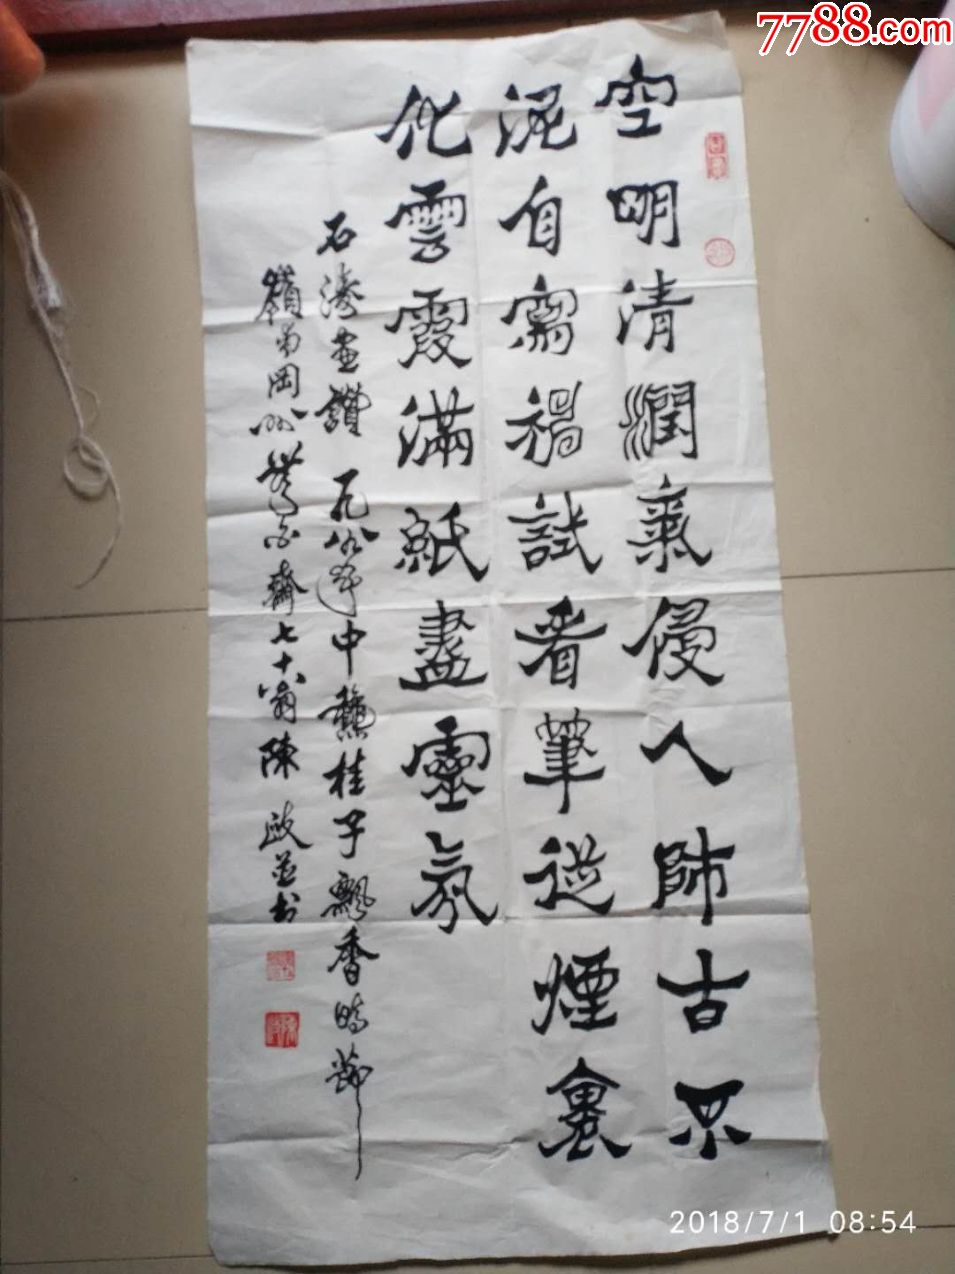 7788.com
空明清潤氣侵人師古不
泥自寫試看筆從煙裏
化雲霞滿紙盡靈氛
石濤畫讚 年中龝桂子飄香時節
嶺南岡州齋七十翁陳政並書
2018/7/1 08:54